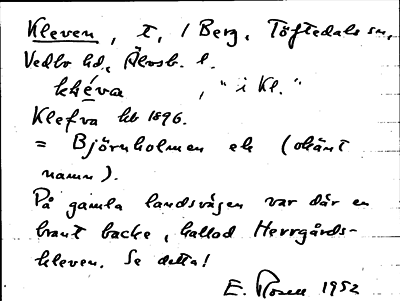 Kleven, t, 1 Berg, Töftedals sn,
Vedbo hd, Älvsb. l.
kléva, "i Kl."
Klefva kb 1896.
= Björnholmen ek (okänt
namn).
På gamla landsvägen var där en
brant backe, kallad Herrgårds-
kleven. Se detta!
E. Rosell 1952